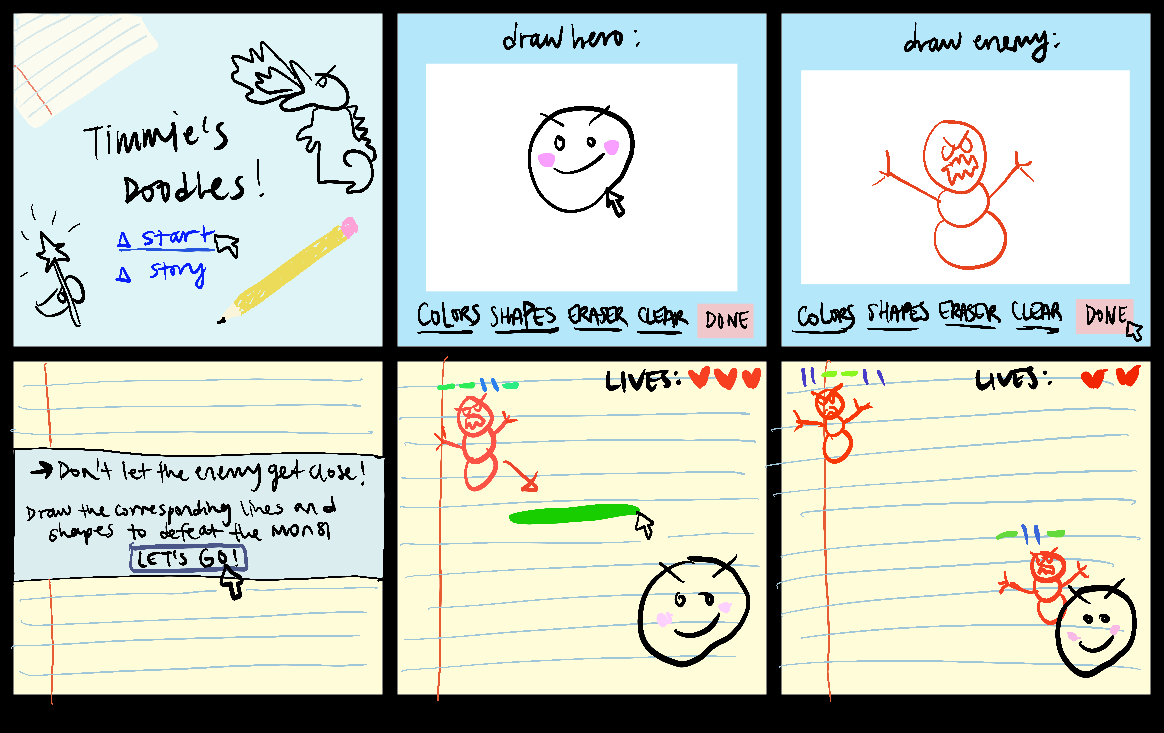 Timmie's
Doodles!
Δ start
Δ story
draw hero:
COLORS SHAPES ERASER CLEAR DONE
draw enemy:
COLORS SHAPES ERASER CLEAR DONE
→ Don't let the enemy get close!
Draw the corresponding lines and
shapes to defeat the
LET'S GO!
LIVES:
LIVES: